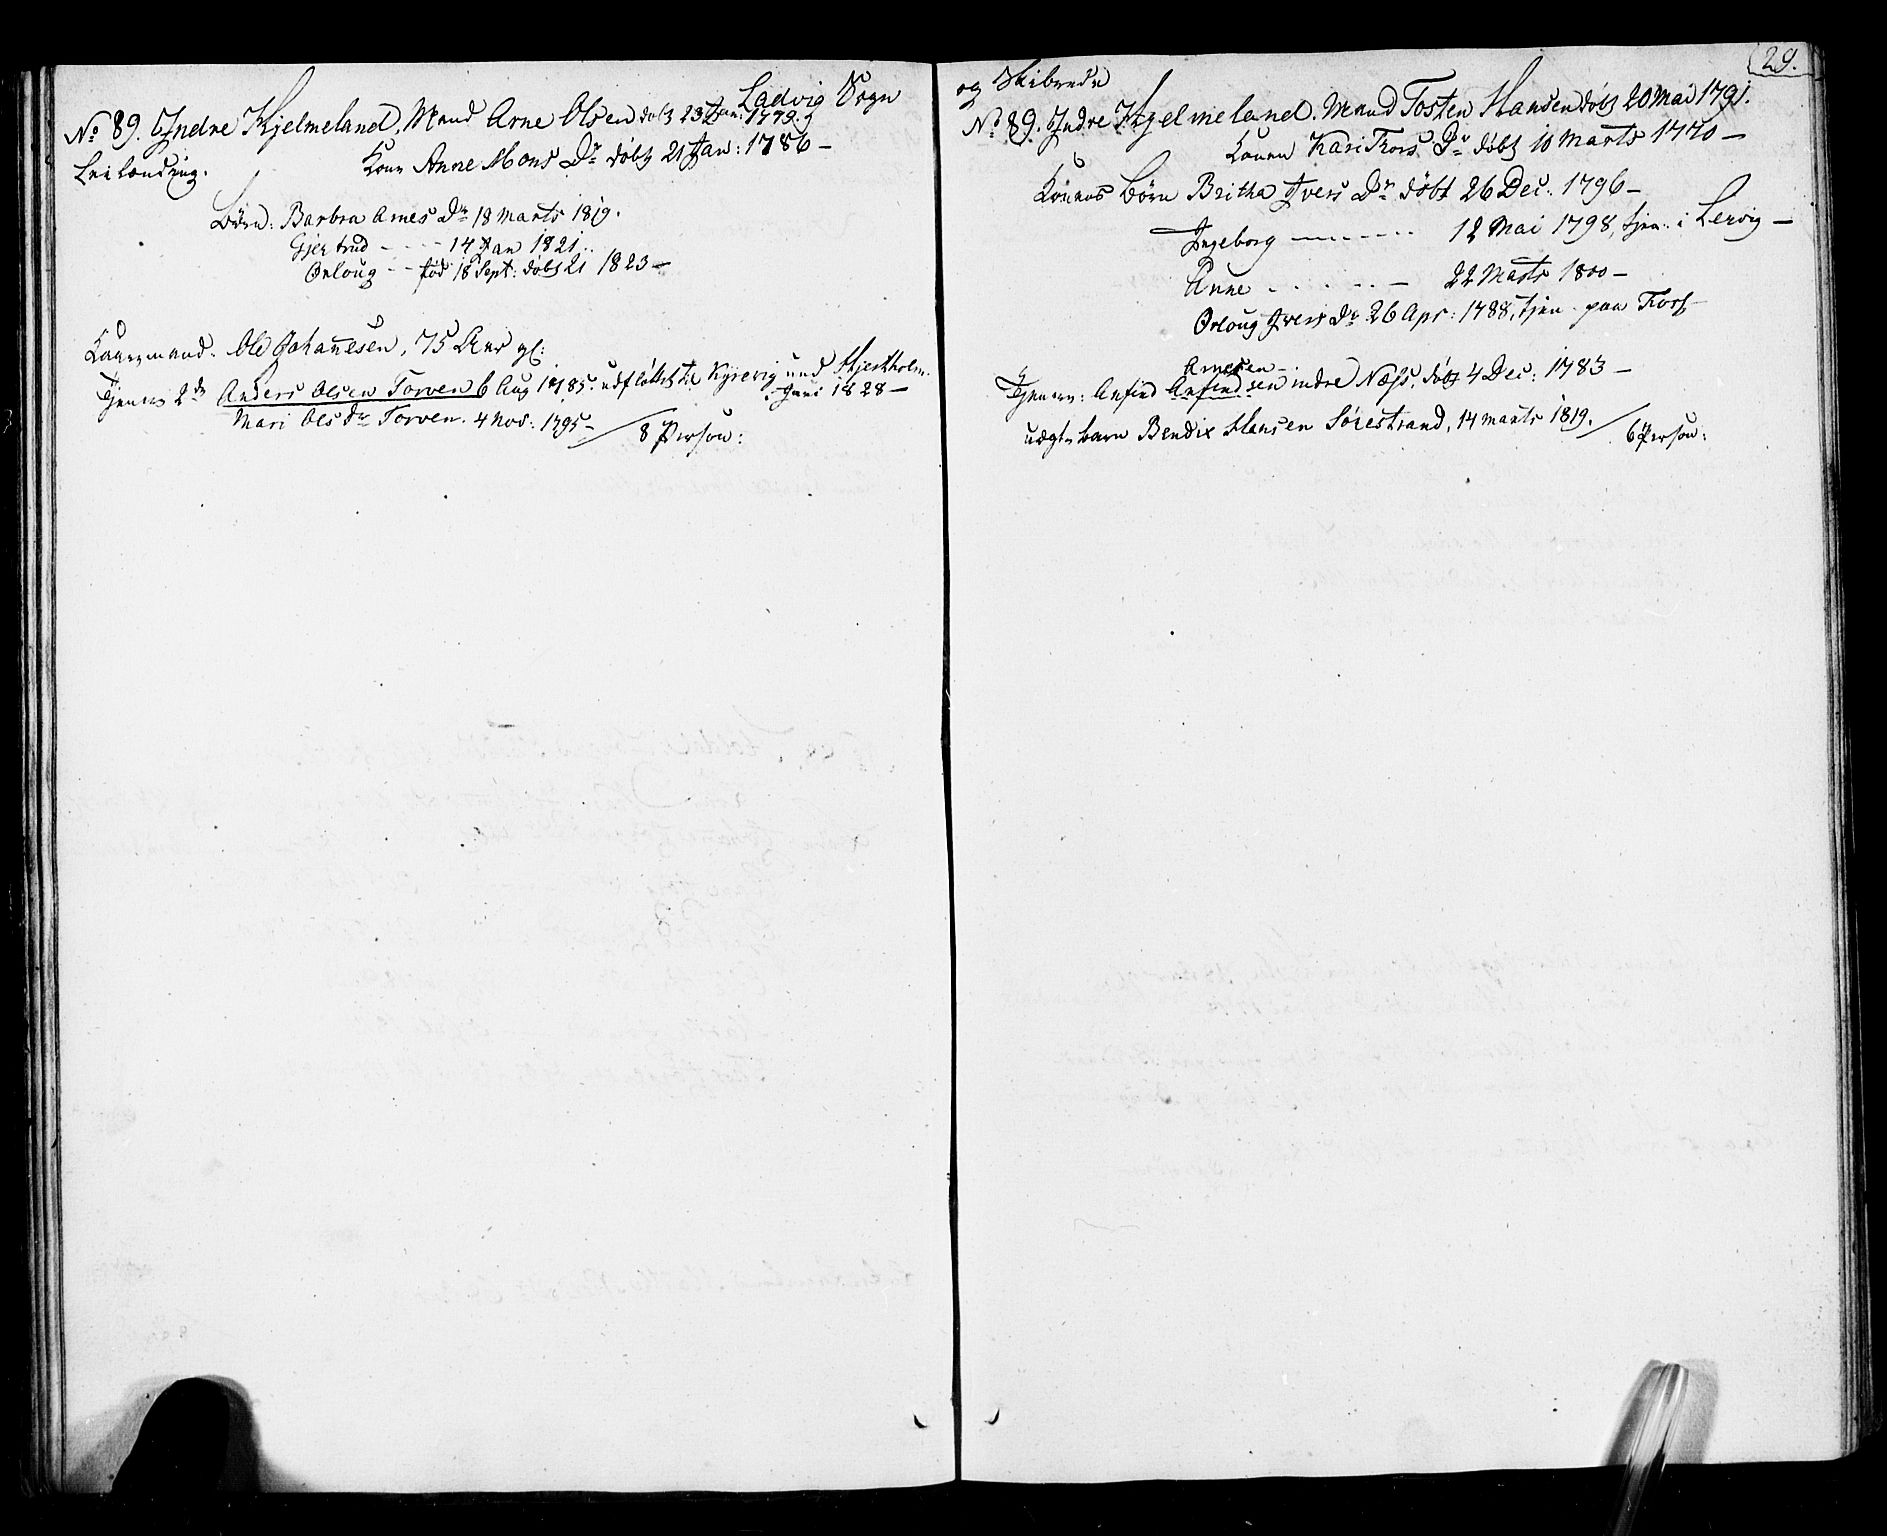 Ladvig Sogn
No 89. Indre Kjelmeland, Mand Arne Olsen døbt 23 Jan: 1779.
Leilænding.
Kone Anne Mons Dr døbt 21 Jan: 1786 –
Børn: Barbra Arnes Dr 18 Marts 1819.
Gjertrud - - - - 14 Jan 1821.
Orloug - - fød 18 Sept: døbt 21 1823 –
Kaarmand. Ole Johannesen, 75 Aar gl:
Tjenere 2de Anders Olsen Torven 6 Aug 1785. udfløttet til Kyrevig und Hjertholm.
Juni 1828 –
Mari Ols Dr Torven. 4 Nov: 1795 –
8 Person:
29.
og Skibrede
No 89. Indre Kjelmeland. Mand Tosten Hansen døbt 20 Mai 1791.
Konen Kari Thors Dr døbt 10 Marts 1770 –
Konens Børn Britha Ivers Dr døbt 26 Dec: 1796 –
Ingeborg - - - - - - 12 Mai 1798, tjen: i Lervig –
Anne - - - - - 22 Marts 1800 –
Orloug Ivers Dr 26 Apr: 1788, tjen. paa Torf –
Arnesen –
Tjenere: Anfind Anfindsen indre Næss, døbt 4 Dec: 1783 –
uægte barn Bendix Hansen Sørestrand, 14 marts 1819.
6 Person: